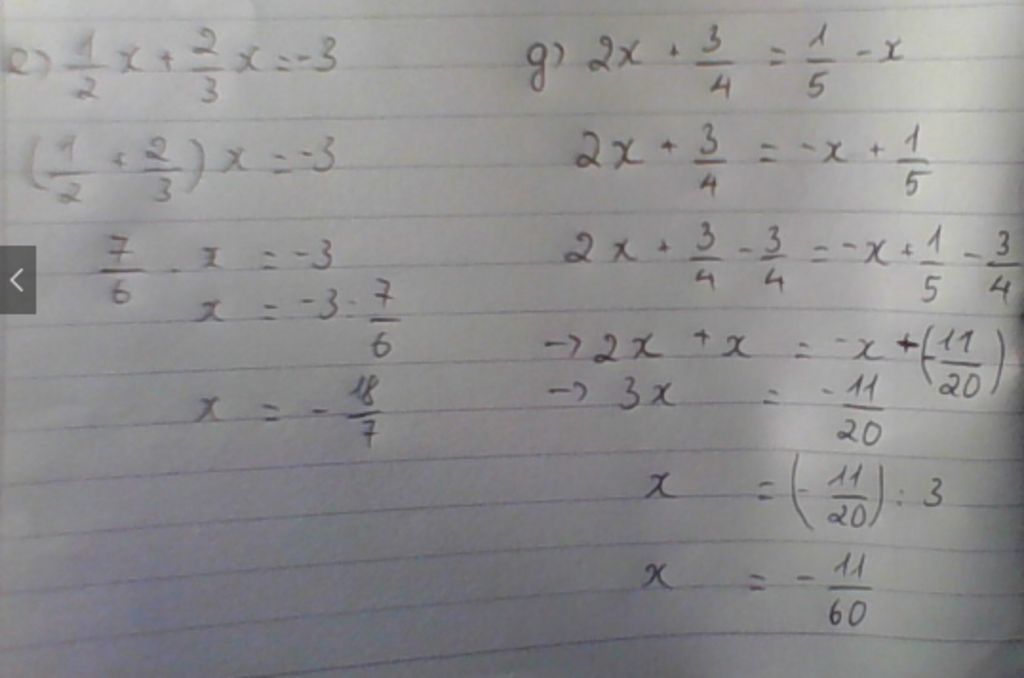 e) 1/2 x + 2/3 x = -3
(1/2 + 2/3) x = -3
7/6 . x = -3
x = -3 : 7/6
x = - 18/7
g) 2x + 3/4 = 1/5 - x
2x + 3/4 = -x + 1/5
2x + 3/4 - 3/4 = -x + 1/5 - 3/4
→ 2x + x = -x + (-11/20)
→ 3x = -11/20
x = (-11/20) : 3
x = - 11/60